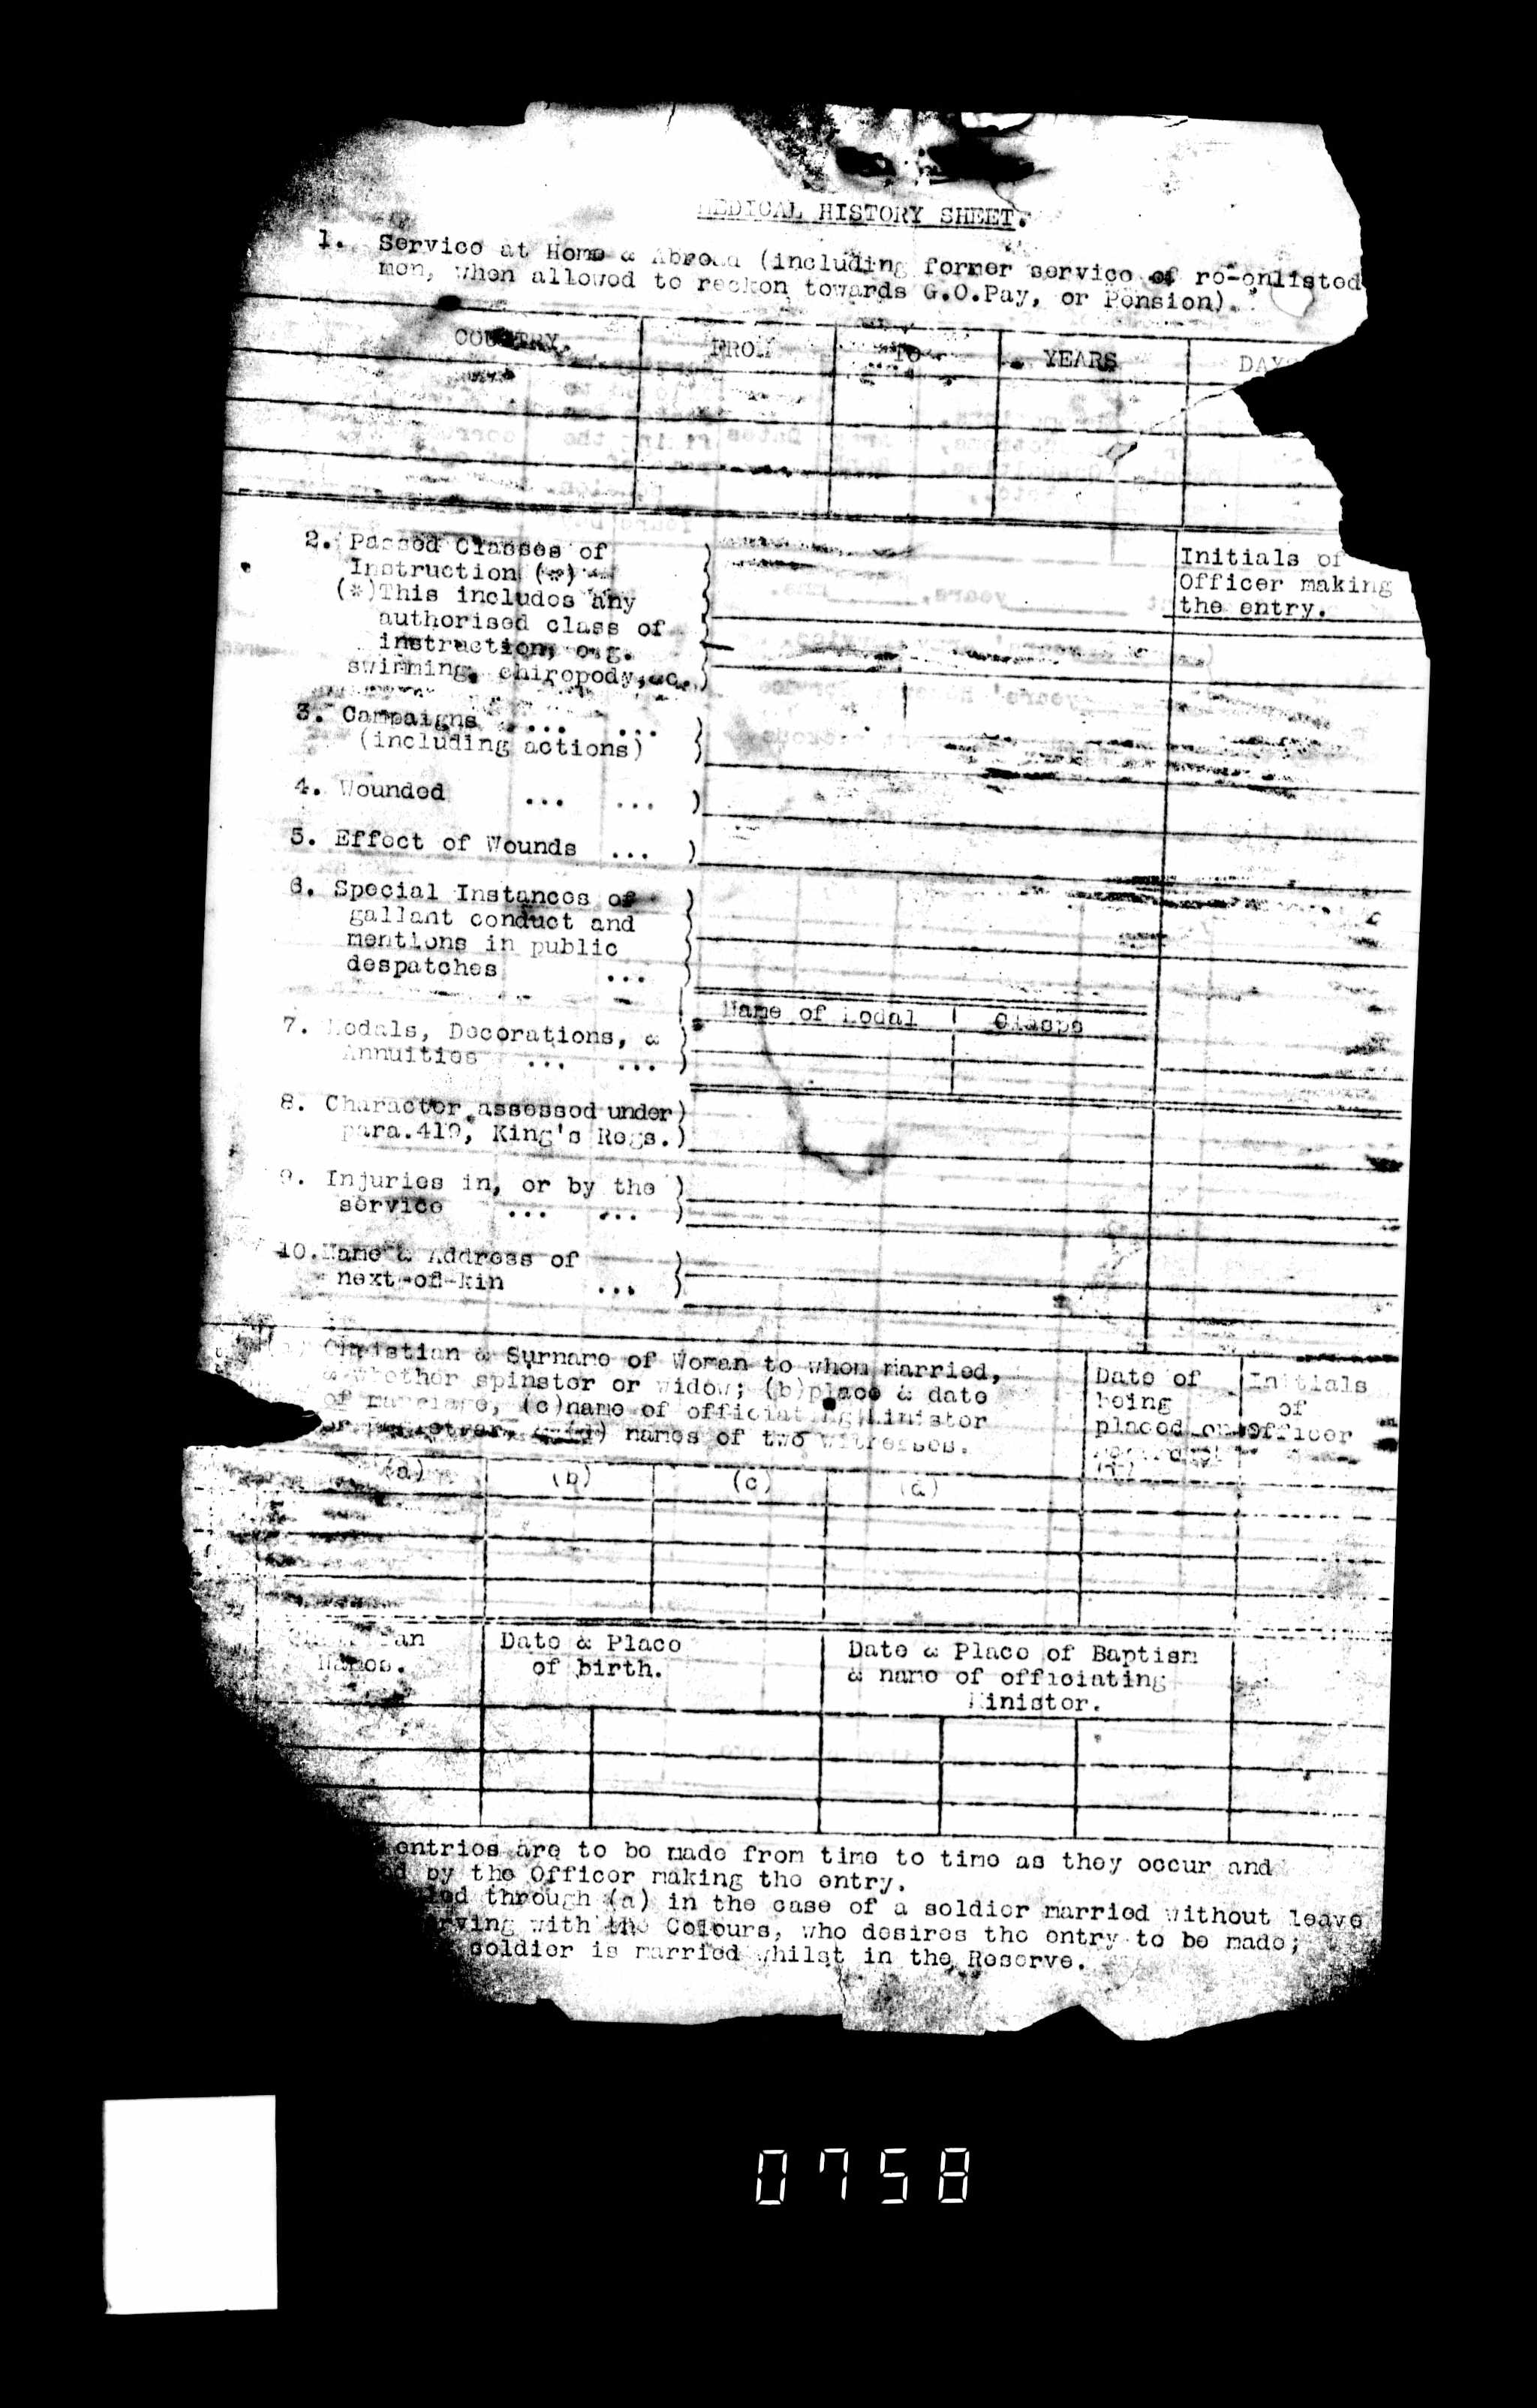 MEDICAL HISTORY SHEET.
1. Service at Home & Abroad (including former service of re-enlisted
men, when allowed to reckon towards G.O.Pay, or Pension).
COUNTRY. FROM TO YEARS DAYS
2. Passed Classes of
Instruction (*)
(*)This includes any
authorised class of
instruction, e.g.
swimming, chiropody,&c.)
Initials of
Officer making
the entry.
3. Campaigns ... ...
(including actions)
4. Wounded ... ... )
5. Effect of Wounds ... )
6. Special Instances of
gallant conduct and
mentions in public
despatches ...
7. Medals, Decorations, &
Annuities ... ...
Name of Medal Clasps
8. Character assessed under)
para.419, King's Regs.)
9. Injuries in, or by the
service ... ...
10.Name & Address of
next-of-kin ...
(a) Christian & Surname of Woman to whom married,
& whether spinster or widow; (b)place & date
of marriage, (c)name of officiating Minister
or Registrar, (d) names of two witnesses.
Date of
being
placed on
Initials
of
Officer
(a) (b) (c) (d)
Names.
Date & Place
of birth.
Date & Place of Baptism
& name of officiating
Minister.
entries are to be made from time to time as they occur and
by the Officer making the entry.
through (a) in the case of a soldier married without leave
with the Colours, who desires the entry to be made;
soldier is married whilst in the Reserve.
0758